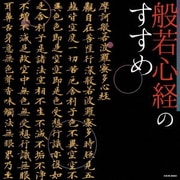 般若心経の
すすめ
摩訶般若波羅蜜多心経
觀自在菩薩行深般若波羅蜜多時照見五
蘊皆空度一切苦厄舍利子色不異空空不
異色色即是空空即是色受想行識亦復如
是舍利子是諸法空相不生不滅不垢不淨
不增不減是故空中無色無受想行識無眼
耳鼻舌身意無色聲香味觸法無眼界乃至